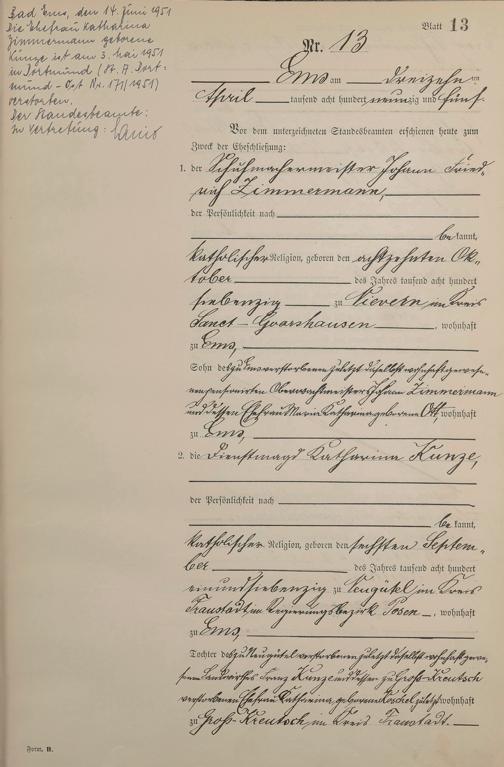 Bad Ems, den 14. Juni 1951
Die Ehefrau Katharina
Zimmermann geborene
Kunze ist am 3. Mai 1951
in Dortmund (St. A. Dort-
mund-Ost Nr. 171/1951)
verstorben.
Der Standesbeamte:
In Vertretung:
Blatt 13
Nr. 13
Ems am dreizehnten
April tausend acht hundert neunzig und fünf.
Vor dem unterzeichneten Standesbeamten erschienen heute zum
Zweck der Eheschließung:
1. der Schuhmachermeister Johann Fried-
rich Zimmermann,
der Persönlichkeit nach
be kannt,
katholischer Religion, geboren den achtzehnten Ok-
tober des Jahres tausend acht hundert
siebenzig zu Nievern im Kreis
Sanct-Goarshausen, wohnhaft
zu Ems,
Sohn des zu Ems verstorbenen zuletzt daselbst wohnhaft gewese-
nen pensionirten Oberwachtmeister Johann Zimmermann
und dessen Ehefrau Maria Katharina geborene Ott, wohnhaft
zu Ems,
2. die Dienstmagd Katharina Kunze,
der Persönlichkeit nach
be kannt,
katholischer Religion, geboren den sechsten Septem-
ber des Jahres tausend acht hundert
einundsiebenzig zu Neugütel im Kreis
Fraustadt im Regierungsbezirk Posen, wohnhaft
zu Ems
Tochter des zu Neugütel verstorbenen zuletzt daselbst wohnhaft gewe-
senen Landwirthes Franz Kunze und dessen zu Groß-Kreutsch
verstorbenen Ehefrau Katharina, geborenen Koschel zuletzt wohnhaft
zu Groß-Kreutsch, im Kreis Fraustadt.
Form. B.